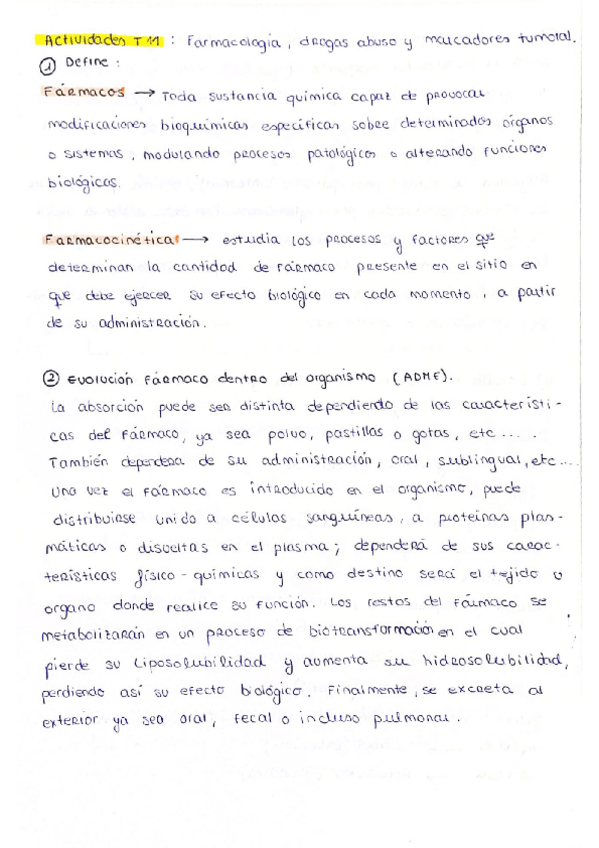 Actividades T 11 : Farmacología, drogas abuso y marcadores tumoral.
① Define :
Fármacos → Toda sustancia química capaz de provocar
modificaciones bioquímicas específicas sobre determinados órganos
o sistemas, modulando procesos patológicos o alterando funciones
biológicas.
Farmacocinética → estudia los procesos y factores que
determinan la cantidad de fármaco presente en el sitio en
que debe ejercer su efecto biológico en cada momento, a partir
de su administración.
② Evolución fármaco dentro del organismo (ADME).
La absorción puede ser distinta dependiendo de las característi-
cas del fármaco, ya sea polvo, pastillas o gotas, etc ....
También dependera de su administración, oral, sublingual, etc...
Una vez el fármaco es introducido en el organismo, puede
distribuirse unido a células sanguíneas, a proteínas plas-
máticas o disueltas en el plasma; dependerá de sus carac-
terísticas físico-químicas y como destino será el tejido u
organo donde realice su función. Los restos del fármaco se
metabolizarán en un proceso de biotransformación en el cual
pierde su liposolubilidad y aumenta su hidrosolubilidad,
perdiendo así su efecto biológico. Finalmente, se excreta al
exterior ya sea oral, fecal o incluso pulmonar.